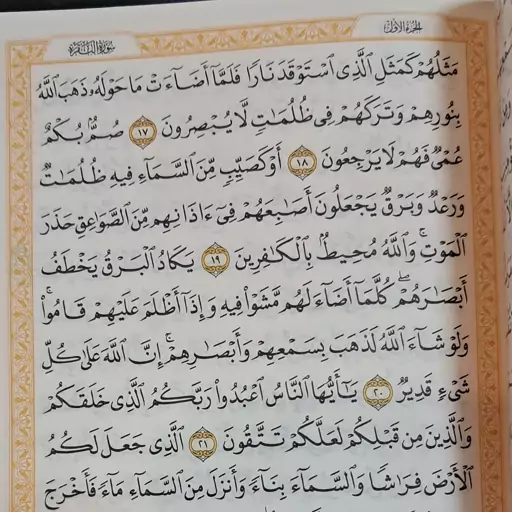 الجزء الأول
سورة البقرة
مَثَلُهُمْ كَمَثَلِ ٱلَّذِى ٱسْتَوْقَدَ نَارًا فَلَمَّآ أَضَآءَتْ مَا حَوْلَهُۥ ذَهَبَ ٱللَّهُ
بِنُورِهِمْ وَتَرَكَهُمْ فِى ظُلُمَٰتٍ لَّا يُبْصِرُونَ ١٧ صُمٌّۢ بُكْمٌ
عُمْىٌ فَهُمْ لَا يَرْجِعُونَ ١٨ أَوْ كَصَيِّبٍ مِّنَ ٱلسَّمَآءِ فِيهِ ظُلُمَٰتٌ
وَرَعْدٌ وَبَرْقٌ يَجْعَلُونَ أَصَٰبِعَهُمْ فِىٓ ءَاذَانِهِم مِّنَ ٱلصَّوَٰعِقِ حَذَرَ
ٱلْمَوْتِ ۚ وَٱللَّهُ مُحِيطٌۢ بِٱلْكَٰفِرِينَ ١٩ يَكَادُ ٱلْبَرْقُ يَخْطَفُ
أَبْصَٰرَهُمْ ۖ كُلَّمَآ أَضَآءَ لَهُم مَّشَوْا۟ فِيهِ وَإِذَآ أَظْلَمَ عَلَيْهِمْ قَامُوا۟ ۚ
وَلَوْ شَآءَ ٱللَّهُ لَذَهَبَ بِسَمْعِهِمْ وَأَبْصَٰرِهِمْ ۚ إِنَّ ٱللَّهَ عَلَىٰ كُلِّ
شَىْءٍ قَدِيرٌ ٢٠ يَٰٓأَيُّهَا ٱلنَّاسُ ٱعْبُدُوا۟ رَبَّكُمُ ٱلَّذِى خَلَقَكُمْ
وَٱلَّذِينَ مِن قَبْلِكُمْ لَعَلَّكُمْ تَتَّقُونَ ٢١ ٱلَّذِى جَعَلَ لَكُمُ
ٱلْأَرْضَ فِرَٰشًا وَٱلسَّمَآءَ بِنَآءً وَأَنزَلَ مِنَ ٱلسَّمَآءِ مَآءً فَأَخْرَجَ